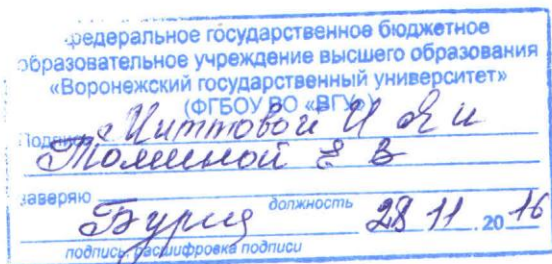 федеральное государственное бюджетное
образовательное учреждение высшего образования
«Воронежский государственный университет»
(ФГБОУ ВО «ВГУ»)
Подпись Миттовой И Я и
Томиной Е В
заверяю
должность
28 11 . 20 16
подпись, расшифровка подписи